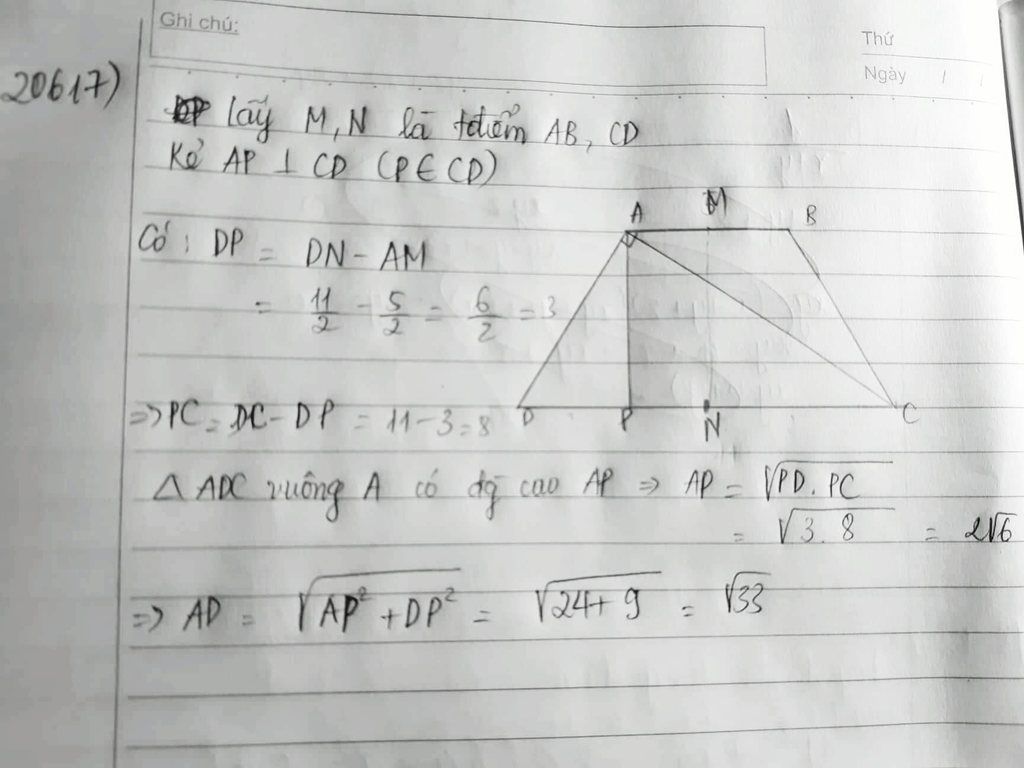 Ghi chú:
Thứ
Ngày / /
20617)
lấy M, N là tđiểm AB, CD
Kẻ AP ⊥ CD (P ∈ CD)
Có: DP = DN - AM
= 11/2 - 5/2 = 6/2 = 3
A M B
D P N C
=> PC = DC - DP = 11 - 3 = 8
△ ADC vuông A có đg cao AP => AP = √PD.PC
= √3.8 = 2√6
=> AD = √AP² + DP² = √24 + 9 = √33